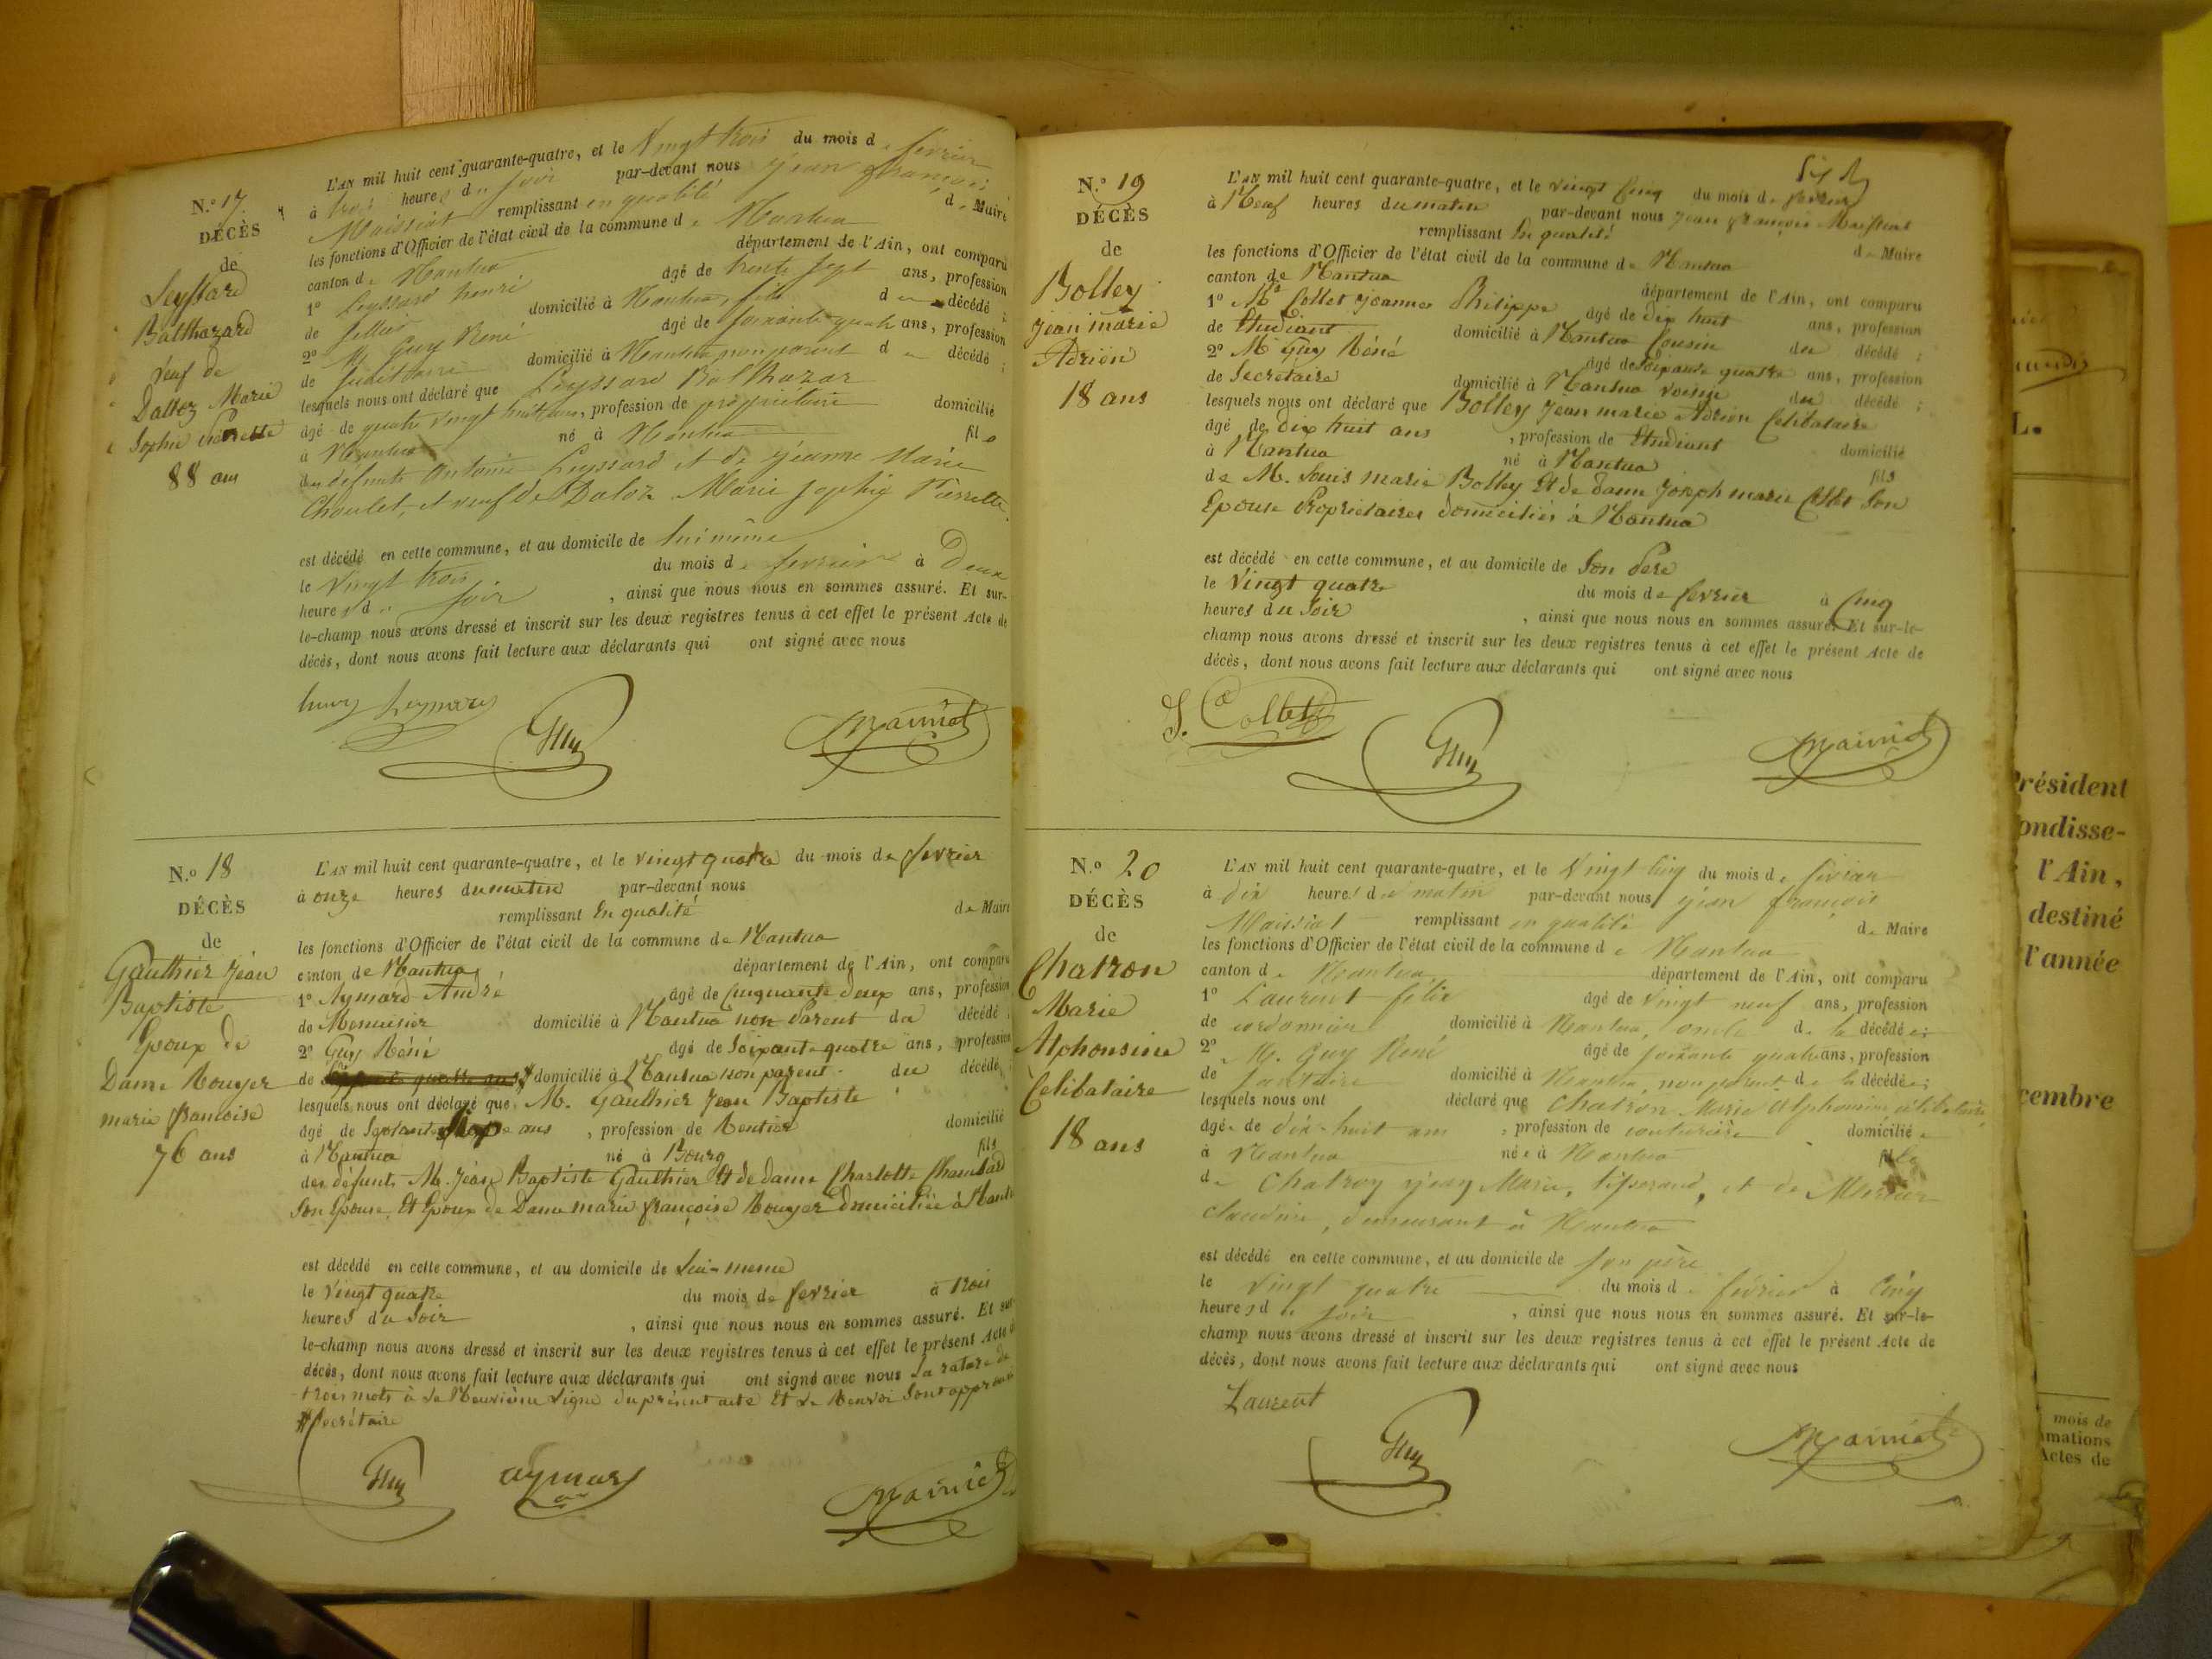 N.º 17
DÉCÈS
de
Leyssard
Balthazard
veuf de
Dallez Marie
Sophie Pierrette
88 ans
L'AN mil huit cent quarante-quatre, et le Vingt trois du mois de février
à trois heures du soir par-devant nous jean françois
Maissiat remplissant en qualité de Maire
les fonctions d'Officier de l'état civil de la commune de Nantua
canton de Nantua département de l'Ain, ont comparu
1º Leyssard henri âgé de trente sept ans, profession
de sellier domicilié à Nantua, fils du décédé ;
2º M. Guy René âgé de soixante quatre ans, profession
de secrétaire domicilié à Nantua non parent du décédé ;
lesquels nous ont déclaré que Leyssard Balthazar
âgé de quatre vingt huit ans, profession de propriétaire domicilié
à Nantua né à Nantua fils
du défunts Antoine Leyssard et de jeanne Marie
Choulet, et veuf de Daloz Marie Sophie Pierrette.
est décédé en cette commune, et au domicile de lui même
le Vingt trois du mois de fevrier à Deux
heures du soir , ainsi que nous nous en sommes assuré. Et sur-
le-champ nous avons dressé et inscrit sur les deux registres tenus à cet effet le présent Acte de
décès, dont nous avons fait lecture aux déclarants qui ont signé avec nous
Guy Maissiat
N.º 18
DÉCÈS
de
Gauthier Jean
Baptiste
Epoux de
Dame Rouyer
marie francoise
76 ans
L'AN mil huit cent quarante-quatre, et le vingt quatre du mois de fevrier
à onze heures du matin par-devant nous
remplissant En qualité de Maire
les fonctions d'Officier de l'état civil de la commune de Nantua
canton de Nantua département de l'Ain, ont comparu
1º Aymard André âgé de Cinquante deux ans, profession
de Menuisier domicilié à Nantua non Parent du décédé ;
2º Guy Réné âgé de Soixante quatre ans, profession
de domicilié à Nantua non parent du décédé,
lesquels nous ont déclaré que M. Gauthier Jean Baptiste
âgé de Septante ans , profession de Rentier domicilié
à Nantua né à Bourg fils
des défunts M. Jean Baptiste Gauthier Et de Dame Charlotte Chambard
Son Epouse, Et Epoux de Dame marie françoise Rouyer Domiciliée à Nantua
est décédé en cette commune, et au domicile de Lui-meme
le Vingt quatre du mois de fevrier à trois
heures du Soir , ainsi que nous nous en sommes assuré. Et sur
le-champ nous avons dressé et inscrit sur les deux registres tenus à cet effet le présent Acte de
décès, dont nous avons fait lecture aux déclarants qui ont signé avec nous La rature de
trois mots à la Neuvième Ligne du présent acte Et Le Renvoi Sont approuvés
Secrétaire
Guy aymard Maissiat
N.º 19
DÉCÈS
de
Bolley
jean marie
Adrien
18 ans
L'AN mil huit cent quarante-quatre, et le vingt Cinq du mois de fevrier
à Neuf heures du matin par-devant nous jean françois Maissiat
remplissant En qualité de Maire
les fonctions d'Officier de l'état civil de la commune de Nantua
canton de Nantua département de l'Ain, ont comparu
1º Mr Collet Joannes Philippe âgé de dix huit ans, profession
de Etudiant domicilié à Nantua Cousin du décédé ;
2º M. Guy Réné âgé de Soixante quatre ans, profession
de Secretaire domicilié à Nantua voisin du décédé ;
lesquels nous ont déclaré que Bolley Jean marie Adrien Celibataire
âgé de Dix huit ans , profession de Etudiant domicilié
à Nantua né à Nantua fils
de M. Louis marie Bolley Et de Dame Joseph marie Collet Son
Epouse Propriétaires domiciliés à Nantua
est décédé en cette commune, et au domicile de Son Pere
le Vingt quatre du mois de fevrier à Cinq
heures du Soir , ainsi que nous nous en sommes assuré. Et sur-le-
champ nous avons dressé et inscrit sur les deux registres tenus à cet effet le présent Acte de
décès, dont nous avons fait lecture aux déclarants qui ont signé avec nous
J. Collet Guy Maissiat
N.º 20
DÉCÈS
de
Chatron
Marie
Alphonsine
Celibataire
18 ans
L'AN mil huit cent quarante-quatre, et le Vingt cinq du mois de février
à dix heures du matin par-devant nous jean françois
Maissiat remplissant en qualité de Maire
les fonctions d'Officier de l'état civil de la commune de Nantua
canton de Nantua département de l'Ain, ont comparu
1º Laurent félix âgé de vingt neuf ans, profession
de cordonnier domicilié à Nantua, oncle de la décédée ;
2º M. Guy René âgé de soixante quatre ans, profession
de domicilié à Nantua, non parent de la décédée ;
lesquels nous ont déclaré que Chatron Marie Alphonsine célibataire
âgée de dix-huit ans , profession de couturière domiciliée
à Nantua née à Nantua fille
de Chatron jean Marie, tisserand, et de Mercier
Claudine, demeurant à Nantua
est décédé en cette commune, et au domicile de son père
le vingt quatre du mois de février à Cinq
heures du soir , ainsi que nous nous en sommes assuré. Et sur-le-
champ nous avons dressé et inscrit sur les deux registres tenus à cet effet le présent Acte de
décès, dont nous avons fait lecture aux déclarants qui ont signé avec nous
Laurent
Guy Maissiat
Président
ondisse-
l'Ain,
destiné
l'année
cembre
mois de
mations
Actes de